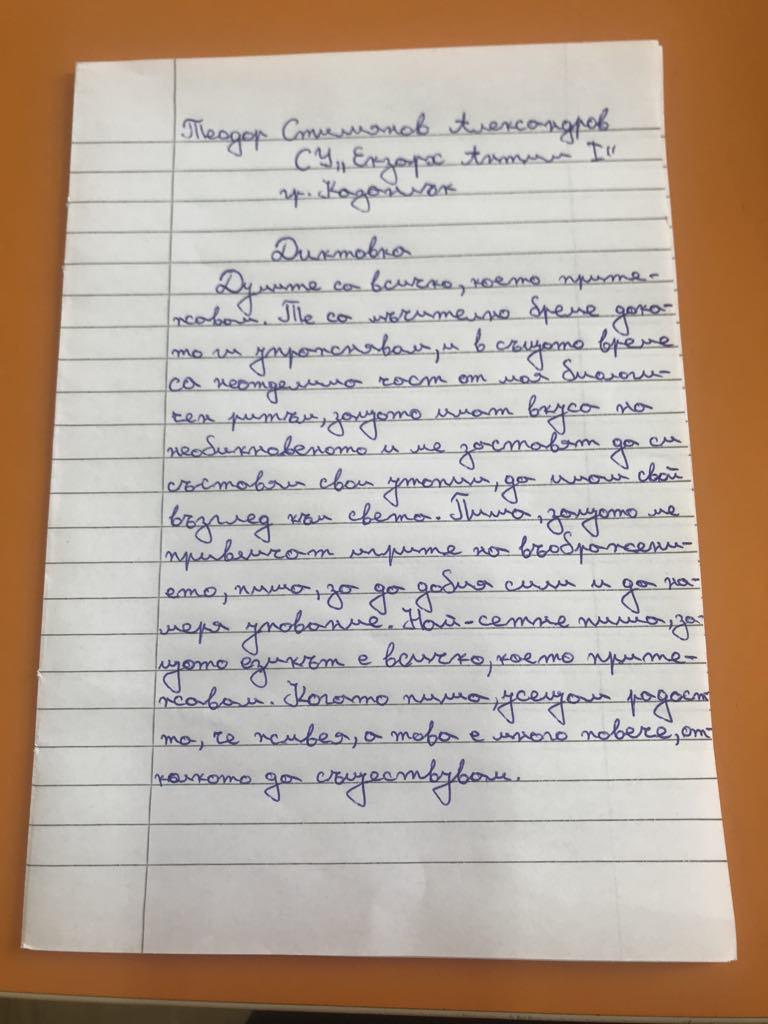 Теодор Стилиянов Александров
СУ„ Екзарх Антим I“
гр. Казанлък
Диктовка
Думите са всичко, което прите-
жавам. Те са мъчително бреме дока-
то ги упражнявам, и в същото време
са неотделима част от моя биологи-
чен ритъм, защото имат вкуса на
необикновеното и ме заставят да си
съставям свои утопии, да имам свой
възглед към света. Пиша, защото ме
привличат игрите на въображени-
ето, пиша, за да добия сили и да на-
меря упование. Най-сетне пиша, за-
щото езикът е всичко, което прите-
жавам. Когато пиша, усещам радост
та, че живея, а това е много повече, от-
колкото да съществувам.